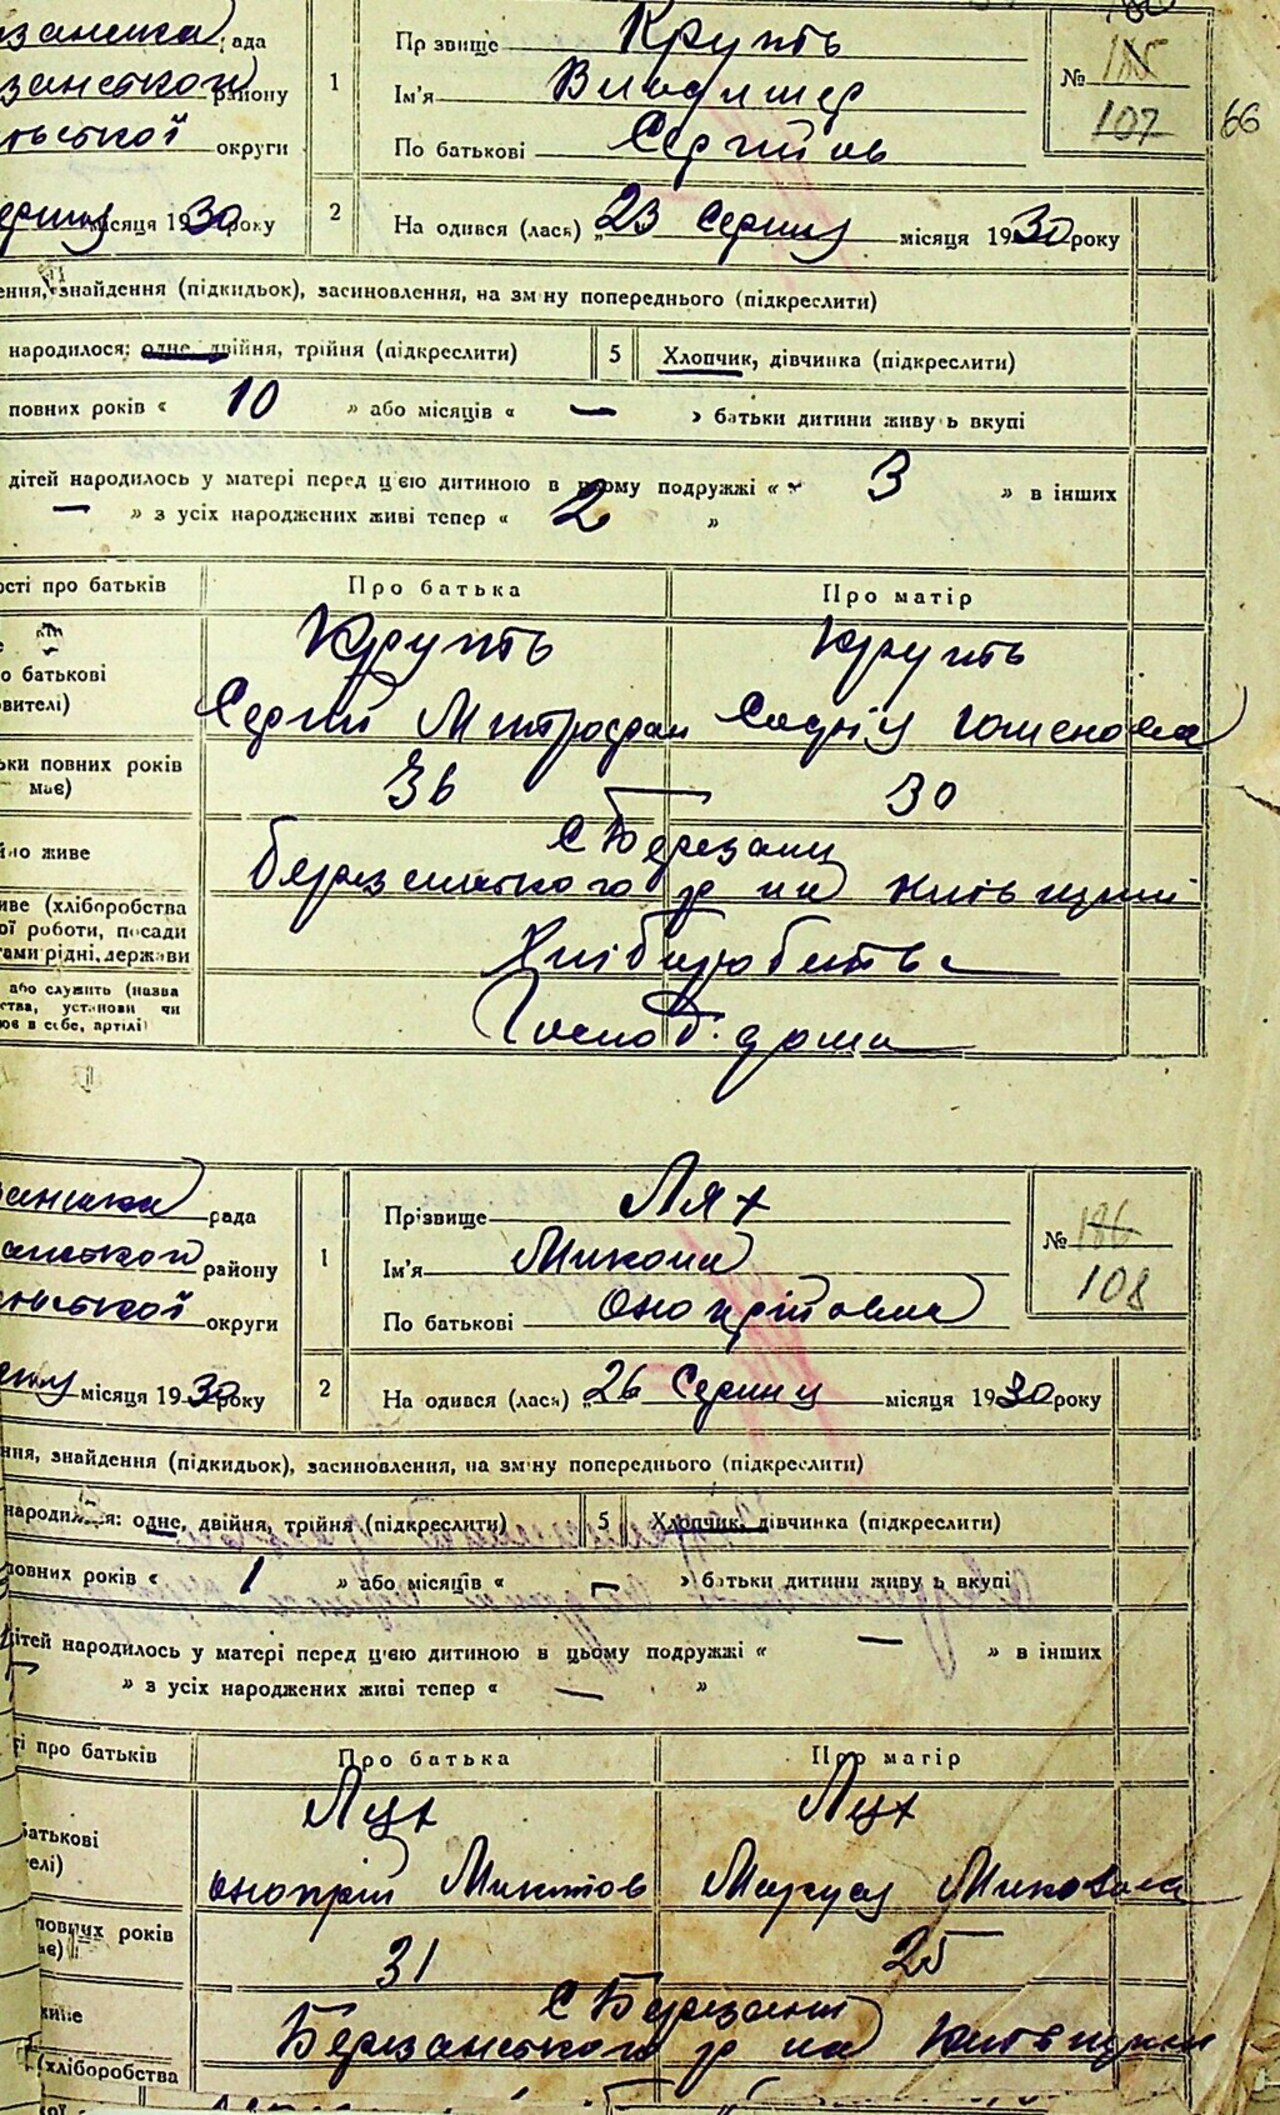 рада
Прізвище Крупь
185
№
району
1
Ім'я Владимер
107
66
округи
По батькові Сергійов
місяця 1930 року
2
На одився (лася) „23 Серпня місяця 1930 року
ення, знайдення (підкидьок), засиновлення, на зміну попереднього (підкреслити)
народилося: одне, двійня, трійня (підкреслити)
5
Хлопчик, дівчинка (підкреслити)
повних років « 10 » або місяців « — » батьки дитини живуть вкупі
дітей народилось у матері перед цією дитиною в цьому подружжі « 3 » в інших
— » з усіх народжених живі тепер « 2 »
ості про батьків
Про батька
Про матір
Крупь
Крупь
о батькові
вителі)
Сергій Митрофан
ьки повних років
має)
36
30
йно живе
с Березани
Березанського р на Київщині
иве (хліборобства
ої роботи, посади
гами рідні, держави
Хліборобство
або служить (назва
ства, установи чи
ює в себе, артілі)
рада
Прізвище Лях
186
№
району
1
Ім'я Микола
108
округи
По батькові
місяця 1930 року
2
На одився (лася) „26 Серпня місяця 1930 року
ння, знайдення (підкидьок), засиновлення, на зміну попереднього (підкреслити)
народилося: одне, двійня, трійня (підкреслити)
5
Хлопчик, дівчинка (підкреслити)
повних років « 1 » або місяців « — » батьки дитини живуть вкупі
дітей народилось у матері перед цією дитиною в цьому подружжі « — » в інших
— » з усіх народжених живі тепер « — »
ті про батьків
Про батька
Про матір
Лях
Лях
батькові
елі)
Онопрій Микитов
Маруся Миковна
повних років
ає)
31
25
живе
с Березані
Березанського р на Київщині
(хліборобства